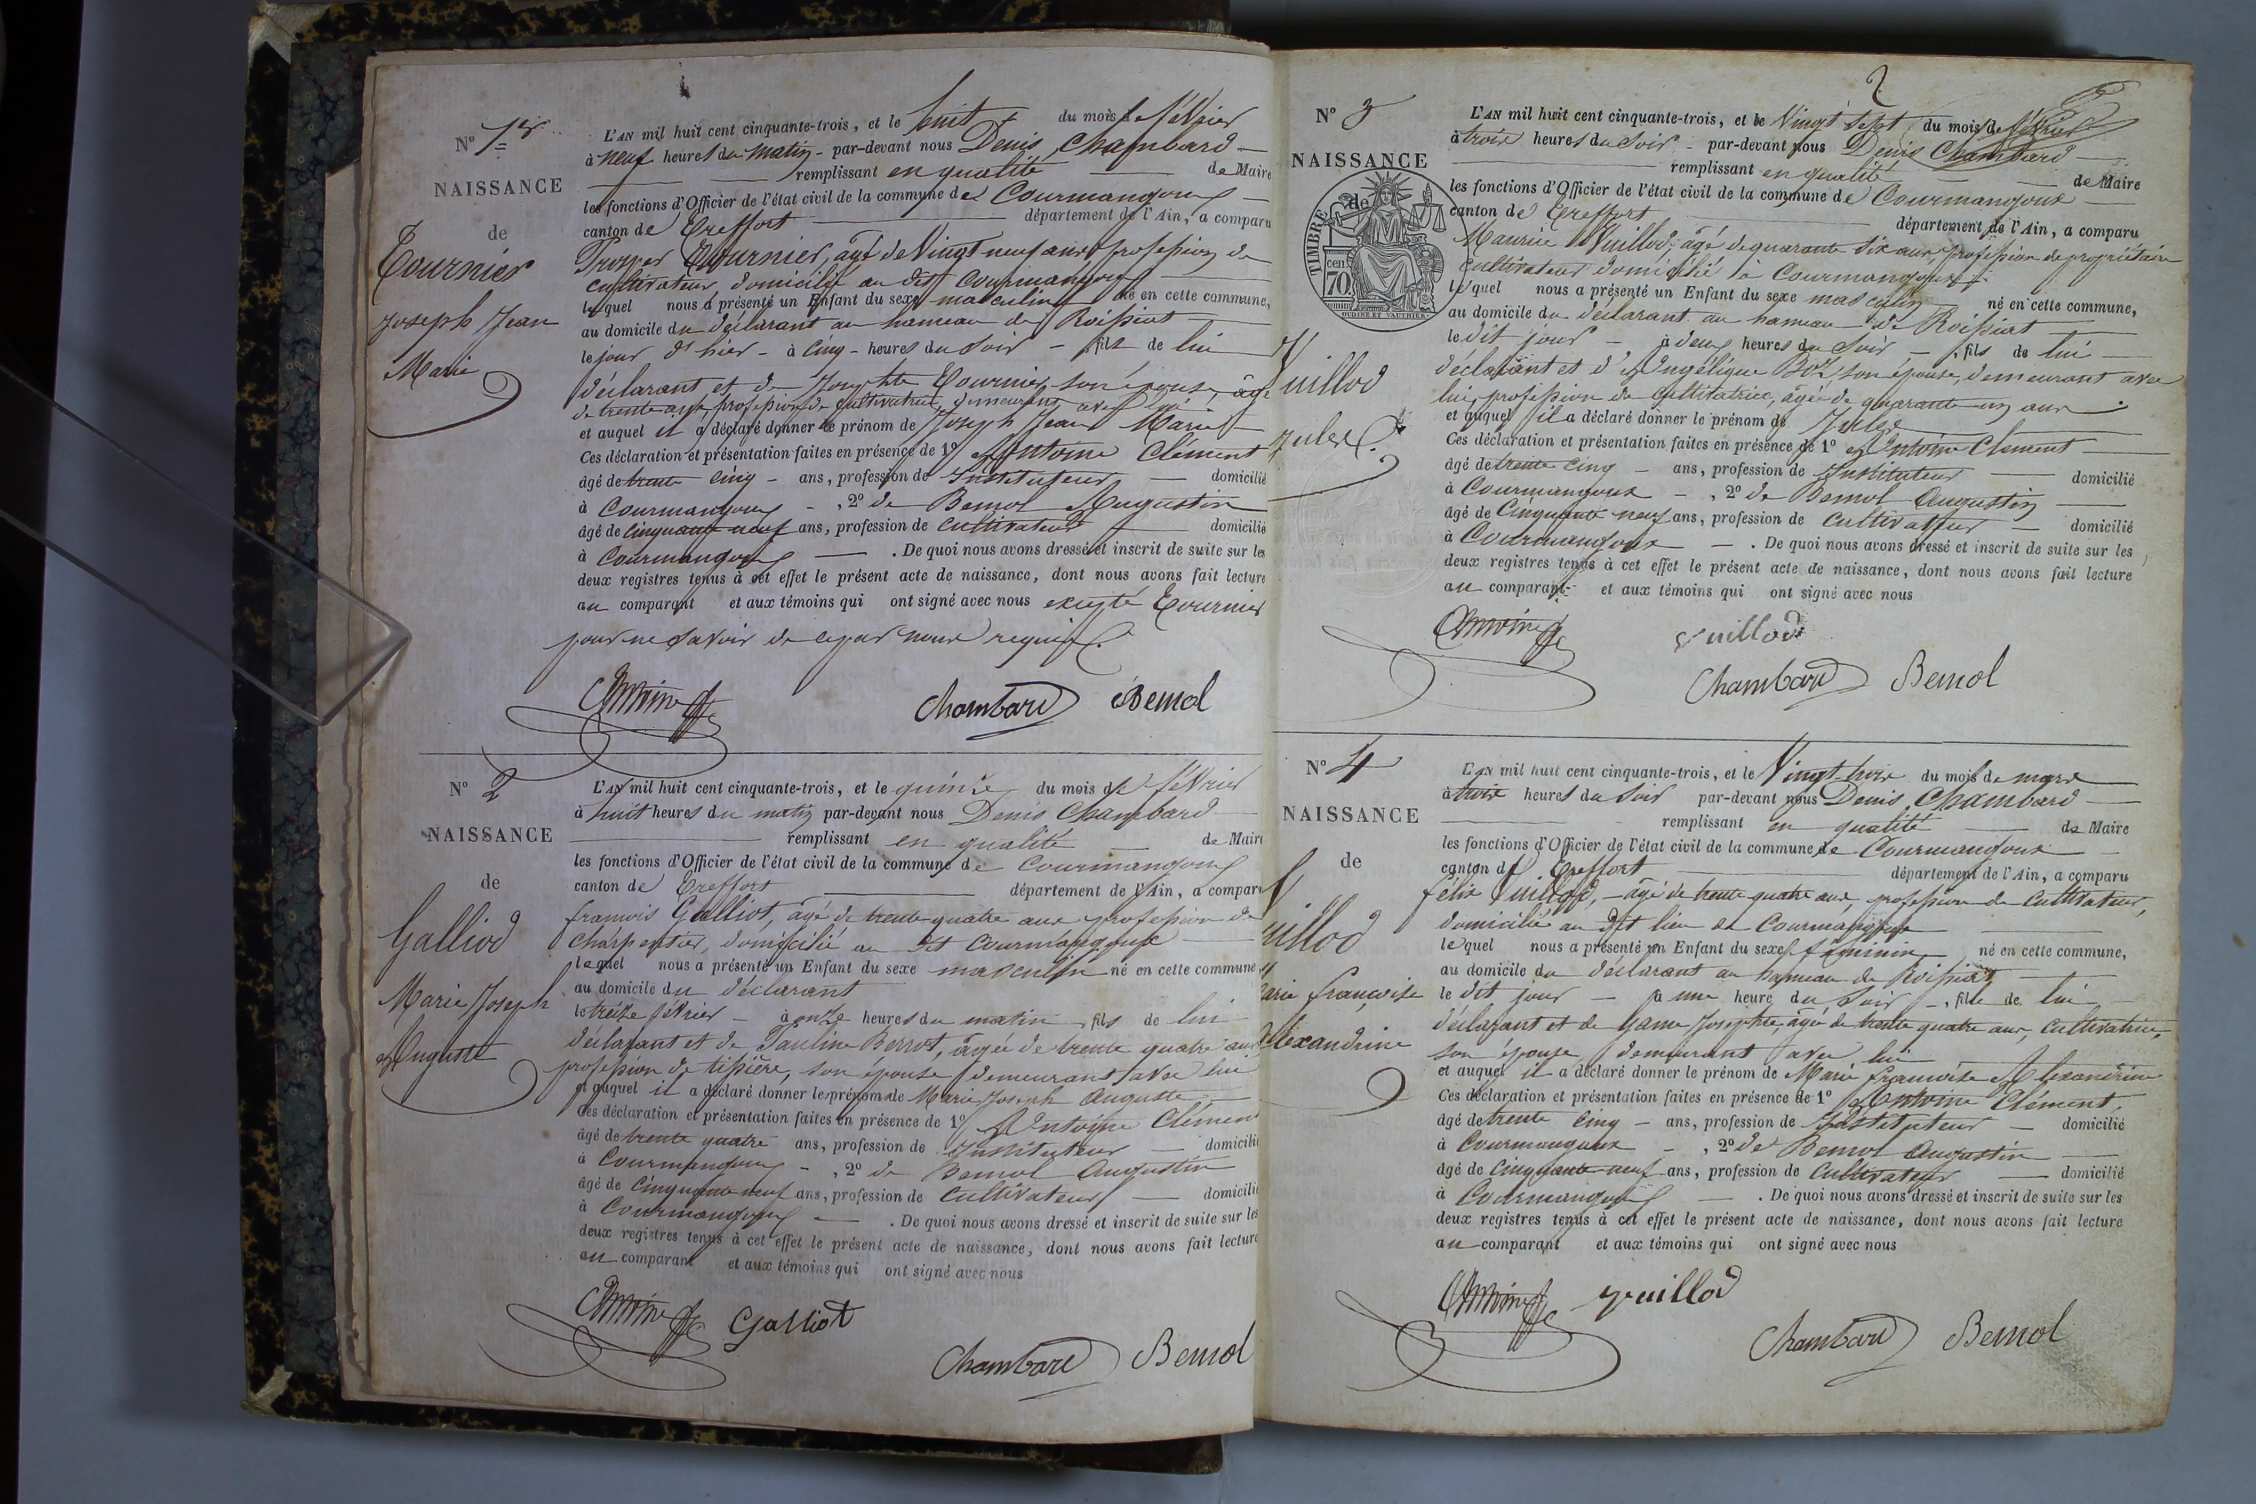 N° 1er
NAISSANCE
de
Tournier
Joseph Jean
Marie
L'AN mil huit cent cinquante-trois, et le huit du mois de février
à neuf heures du matin par-devant nous Denis Chambard
remplissant en qualité de Maire
les fonctions d'Officier de l'état civil de la commune de Courmangoux
canton de Treffort département de l'Ain, a comparu
Prosper Tournier, âgé de Vingt neuf ans profession de
cultivateur, domicilié au dit Courmangoux
lequel nous a présenté un Enfant du sexe masculin né en cette commune,
au domicile du déclarant au hameau de Roissiat
le jour d'hier à cinq heures du Soir fils de lui
déclarant et de Josephte Tournier, son épouse, âgée
de trente ans, profession de cultivatrice, demeurant avec lui
et auquel il a déclaré donner le prénom de Joseph Jean Marie
Ces déclaration et présentation faites en présence de 1° Antoine Clément
âgé de trente cinq ans, profession de Instituteur domicilié
à Courmangoux , 2° de Bemol Augustin
âgé de cinquante neuf ans, profession de cultivateur domicilié
à Courmangoux . De quoi nous avons dressé et inscrit de suite sur les
deux registres tenus à cet effet le présent acte de naissance, dont nous avons fait lecture
au comparant et aux témoins qui ont signé avec nous excepté Tournier
pour ne Savoir de ce par nous requis.
Antoine Chambard Bemol
N° 2
NAISSANCE
de
Galliod
Marie Joseph
Auguste
L'AN mil huit cent cinquante-trois, et le quinze du mois de février
à huit heures du matin par-devant nous Denis Chambard
remplissant en qualité de Maire
les fonctions d'Officier de l'état civil de la commune de Courmangoux
canton de Treffort département de l'Ain, a comparu
francois Galliot, âgé de trente quatre ans profession de
charpentier, domicilié au dit Courmangoux
lequel nous a présenté un Enfant du sexe masculin né en cette commune
au domicile du déclarant
le treize février à onze heures du matin, fils de lui
déclarant et de Pauline Berrod, âgée de trente quatre ans
profession de tissière, son épouse demeurant avec lui
et auquel il a déclaré donner les prénoms de Marie Joseph Auguste
Ces déclaration et présentation faites en présence de 1° Antoine Clément
âgé de trente quatre ans, profession de Instituteur domicilié
à Courmangoux , 2° de Bemol Augustin
âgé de cinquante neuf ans, profession de Cultivateur domicilié
à Courmangoux . De quoi nous avons dressé et inscrit de suite sur les
deux registres tenus à cet effet le présent acte de naissance, dont nous avons fait lecture
au comparant et aux témoins qui ont signé avec nous
Antoine Galliot
Chambard Bemol
2
N° 3
NAISSANCE
de
TIMBRE
70
Vuillod
Jules
L'AN mil huit cent cinquante-trois, et le Vingt Sept du mois de février
à trois heures du Soir par-devant nous Denis Chambard
remplissant en qualité de Maire
les fonctions d'Officier de l'état civil de la commune de Courmangoux
canton de Treffort département de l'Ain, a comparu
Maurice Vuillod, âgé de quarante six ans, profession de propriétaire
cultivateur domicilié à Courmangoux
lequel nous a présenté un Enfant du sexe masculin né en cette commune,
au domicile du déclarant au hameau de Roissiat
le dit jour à deux heures du Soir, fils de lui
déclarant et d'Angélique son épouse, demeurant avec
lui, profession de cultivatrice, âgée de quarante un ans
et auquel il a déclaré donner le prénom de Jules
Ces déclaration et présentation faites en présence de 1° Antoine Clement
âgé de trente cinq ans, profession de Instituteur domicilié
à Courmangoux , 2° de Bemol Augustin
âgé de Cinquante neuf ans, profession de Cultivateur domicilié
à Courmangoux . De quoi nous avons dressé et inscrit de suite sur les
deux registres tenus à cet effet le présent acte de naissance, dont nous avons fait lecture
au comparant et aux témoins qui ont signé avec nous
Antoine vuillod
Chambard Bemol
N° 4
NAISSANCE
de
Vuillod
Marie françoise
Alexandrine
L'AN mil huit cent cinquante-trois, et le Vingt-trois du mois de mars
à trois heures du Soir par-devant nous Denis Chambard
remplissant en qualité de Maire
les fonctions d'Officier de l'état civil de la commune de Courmangoux
canton de Treffort département de l'Ain, a comparu
félix Vuillod, âgé de trente quatre ans, profession de Cultivateur,
domicilié au dit lieu de Courmangoux
lequel nous a présenté un Enfant du sexe féminin né en cette commune,
au domicile du déclarant au hameau de Roissiat
le dit jour à une heure du Soir, fille de lui
déclarant et de Josephte, âgée de trente quatre ans, Cultivatrice,
son épouse demeurant avec lui
et auquel il a déclaré donner le prénom de Marie francoise Alexandrine
Ces déclaration et présentation faites en présence de 1° Antoine Clément,
âgé de trente cinq ans, profession de Instituteur domicilié
à Courmangoux , 2° de Bemol Augustin
âgé de Cinquante neuf ans, profession de Cultivateur domicilié
à Courmangoux . De quoi nous avons dressé et inscrit de suite sur les
deux registres tenus à cet effet le présent acte de naissance, dont nous avons fait lecture
au comparant et aux témoins qui ont signé avec nous
Antoine vuillod
Chambard Bemol